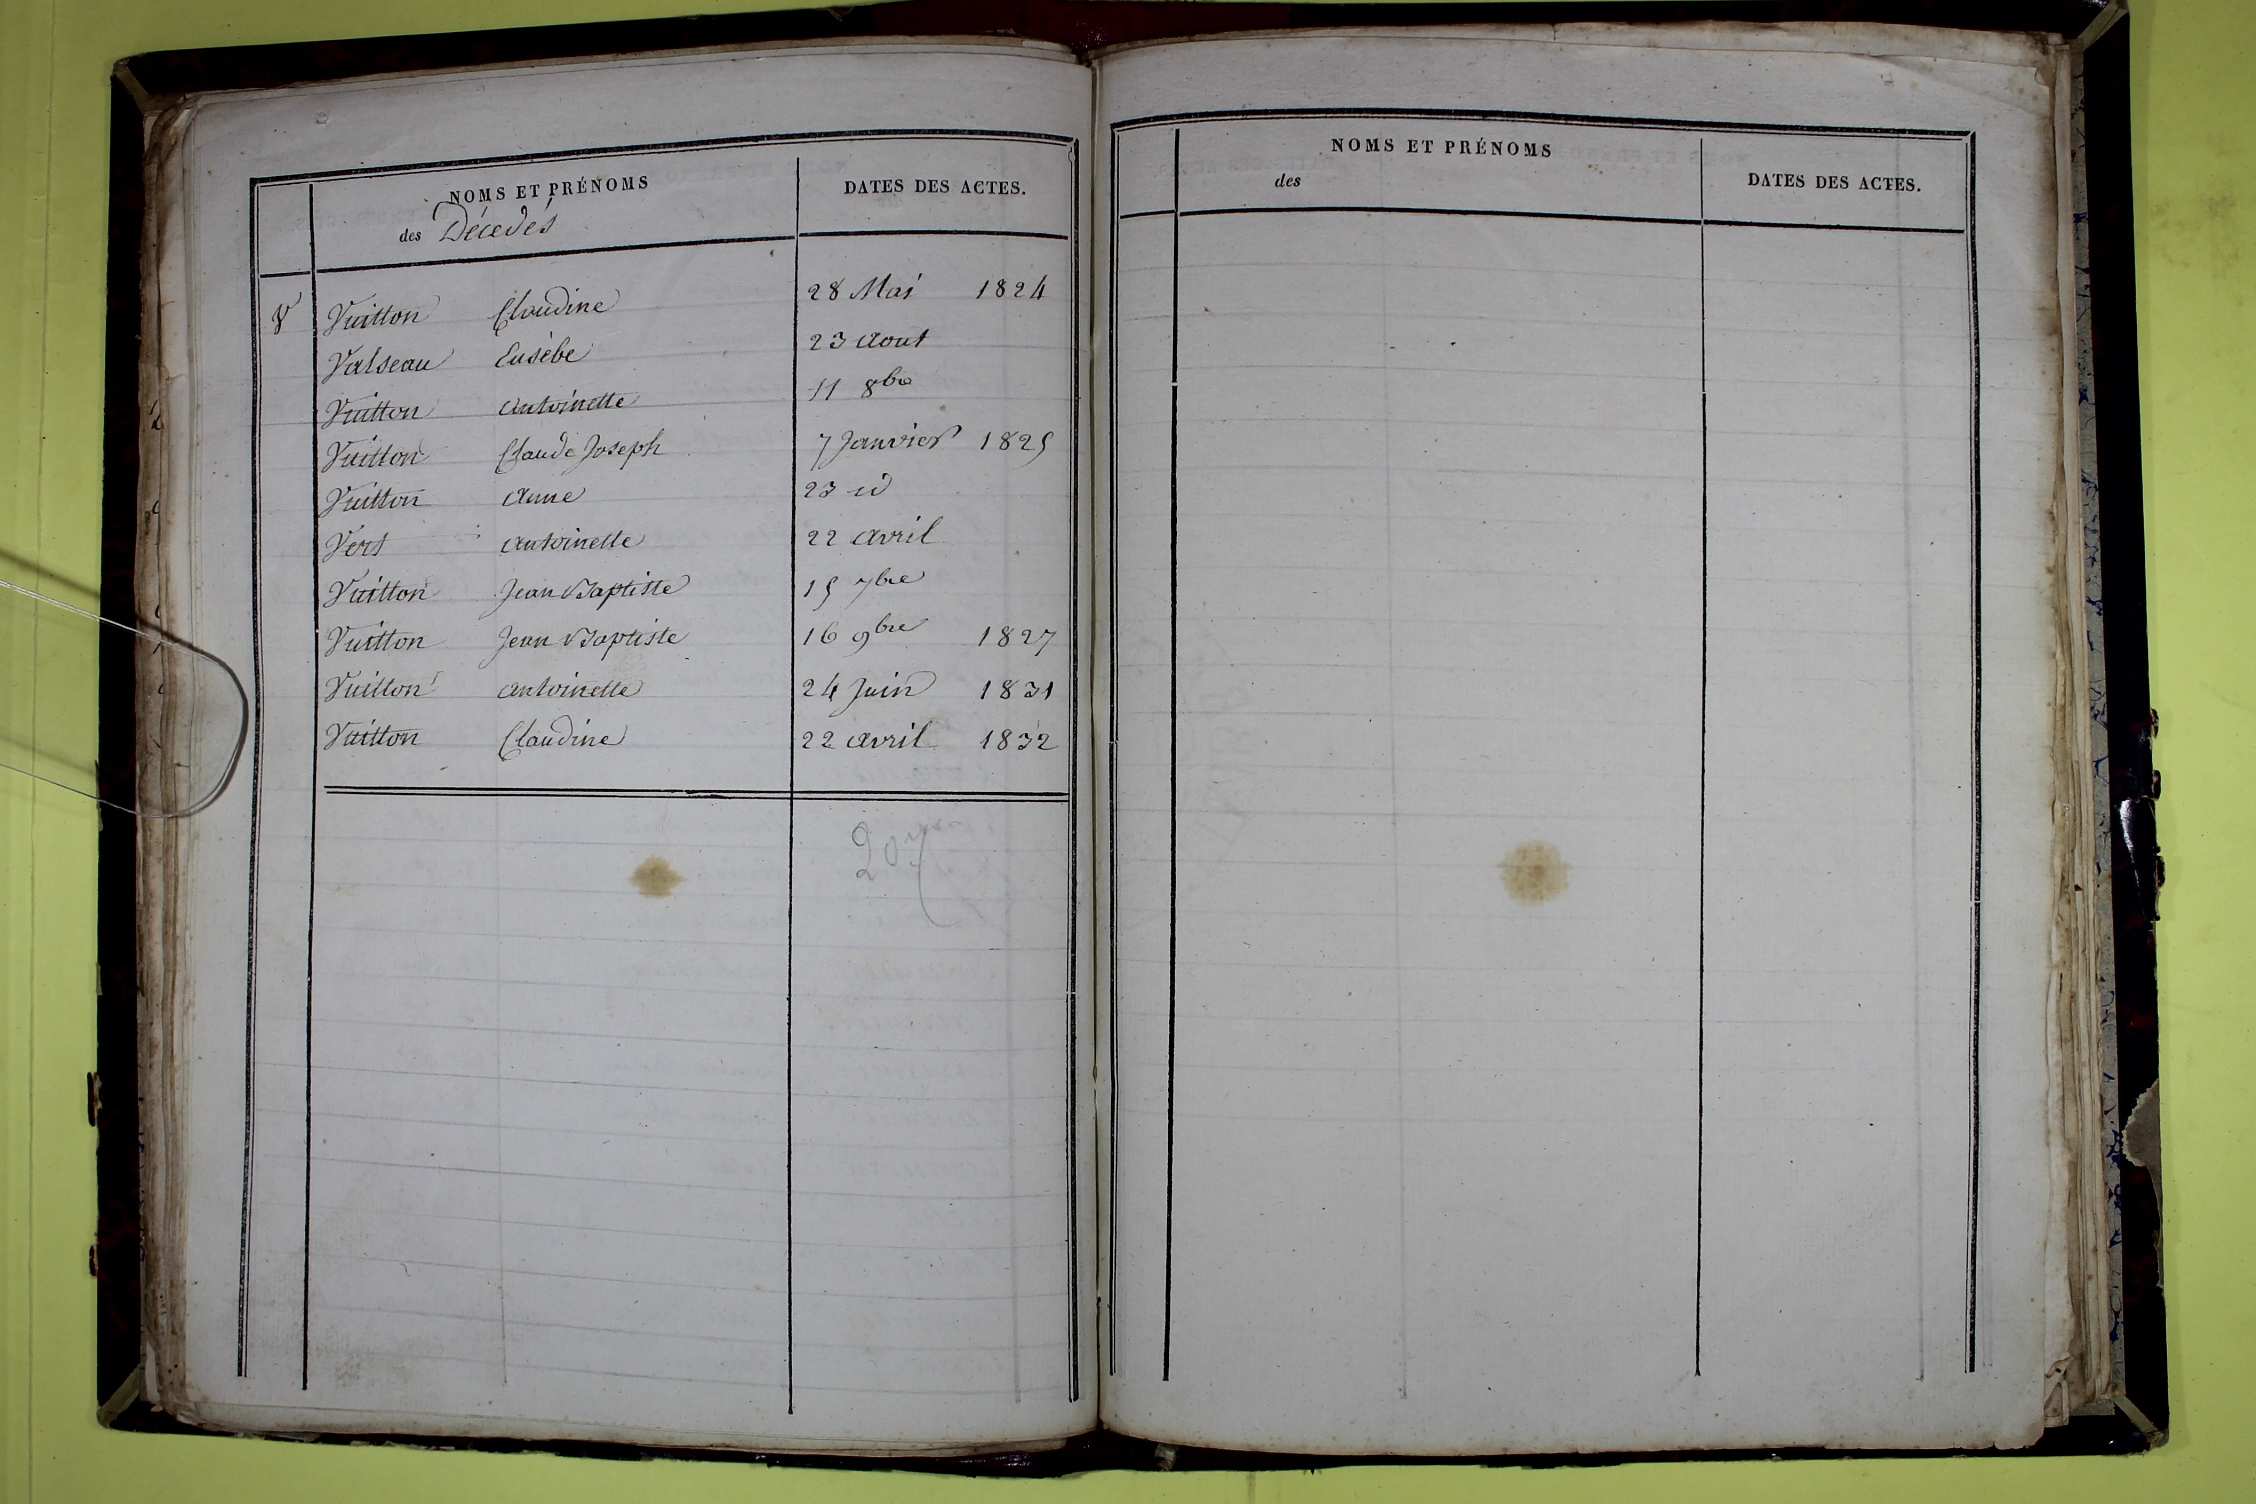 NOMS ET PRÉNOMS
des Décedés
DATES DES ACTES.
V Vuitton Claudine 28 Mai 1824
Valseau Eusèbe 23 aout
Vuitton antoinette 11 8bre
Vuitton Claude Joseph 7 Janvier 1825
Vuitton anne 23 id
Vers antoinette 22 avril
Vuitton Jean Baptiste 15 7bre
Vuitton Jean Baptiste 16 9bre 1827
Vuitton antoinette 24 Juin 1831
Vuitton Claudine 22 avril 1832
NOMS ET PRÉNOMS
des
DATES DES ACTES.